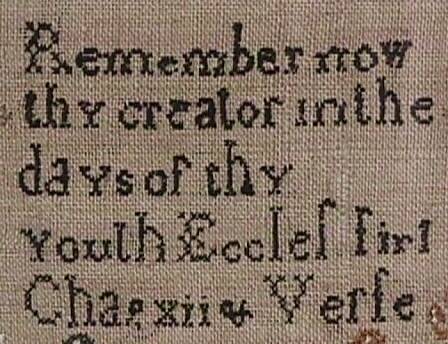 Remember now
thy creator in the
days of thy
youth Eccleſ firt
Chap xii & Verſe